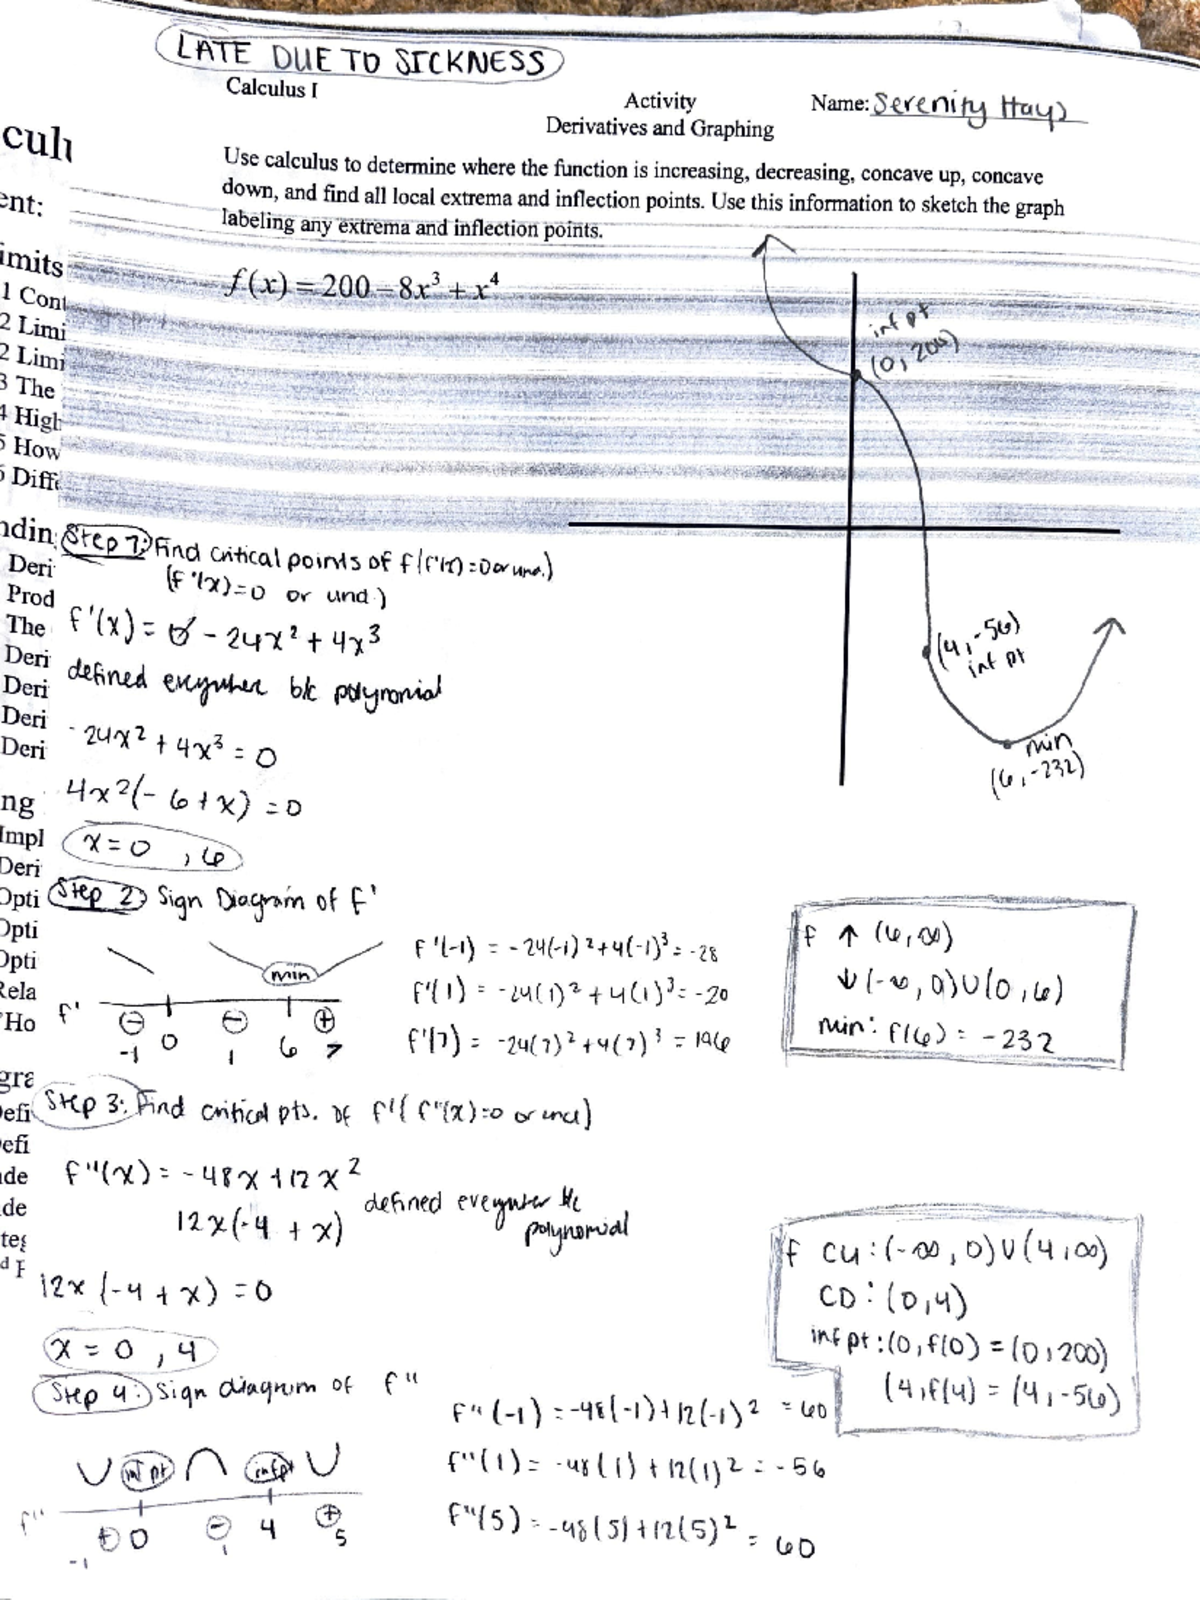 LATE DUE TO SICKNESS
Calculus I
Activity
Derivatives and Graphing
Name: Serenity Hays
Use calculus to determine where the function is increasing, decreasing, concave up, concave
down, and find all local extrema and inflection points. Use this information to sketch the graph
labeling any extrema and inflection points.
f(x) = 200 - 8x³ + x⁴
inf pt
(0, 200)
(4, -56)
inf pt
min
(6, -232)
ent:
imits
1 Cont
2 Limi
2 Limi
3 The
4 High
5 How
6 Diffe
ndin
Deri
Prod
The
Deri
Deri
Deri
Deri
ng
Impl
Deri
Opti
Opti
Opti
Rela
Ho
gra
efi
efi
de
de
teg
Step 1: Find critical points of f (f'(x)=0 or und.)
(f'(x)=0 or und.)
f'(x) = 0 - 24x² + 4x³
defined everywhere b/c polynomial
-24x² + 4x³ = 0
4x²(-6+x) = 0
x = 0, 6
Step 2: Sign Diagram of f'
min
f'
⊖ ⊖ ⊕
-1 0 1 6 7
f'(-1) = -24(-1)²+4(-1)³ = -28
f'(1) = -24(1)²+4(1)³ = -20
f'(7) = -24(7)²+4(7)³ = 196
f ↑ (6,∞)
↓ (-∞, 0)∪(0, 6)
min: f(6) = -232
Step 3: Find critical pts. of f' (f''(x)=0 or und)
f''(x) = -48x + 12x²
12x(-4 + x)
defined everywhere b/c
polynomial
12x(-4 + x) = 0
x = 0, 4
f CU: (-∞, 0)∪(4,∞)
CD: (0,4)
inf pt: (0, f(0) = (0,200)
(4, f(4) = (4, -56)
Step 4: Sign diagram of f''
∪ inf pt ∩ inf pt ∪
f''
⊕ 0 ⊖ 4 ⊕
-1 1 5
f''(-1) = -48(-1)+12(-1)² = 60
f''(1) = -48(1)+12(1)² = -56
f''(5) = -48(5)+12(5)² = 60